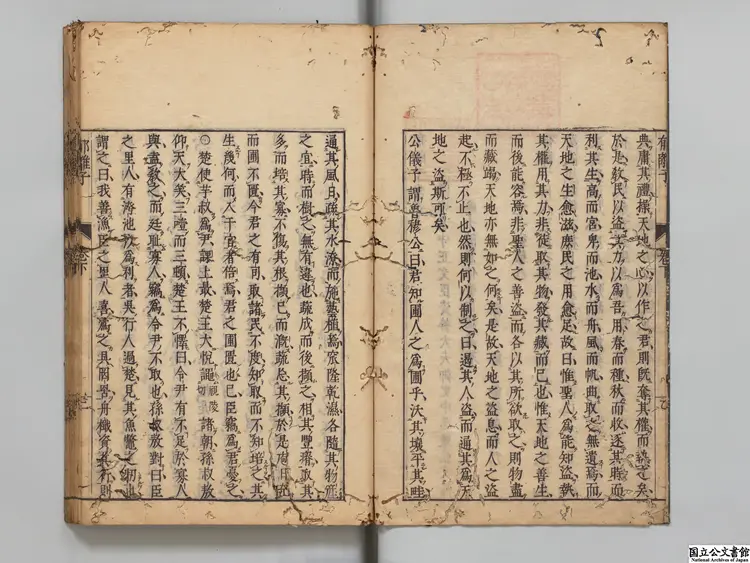 郁離子
典庸其禮操天地之心以作之君則既奪其權而執之矣
於是教民以盜其力以為吾用春而種秋而收逐其時而
利其生高而宮卑而池水而舟風而帆曲取之無遺焉而
天地之生愈滋庶民之用愈足故曰惟聖人為能知盜執
其權用其力非徒取其物發其藏而已也惟天地之善生
而後能容焉非聖人之善盜而各以其所欲取之則物盡
而藏竭天地亦無如之何矣是故天地之盜息而人之盜
起不極不止也然則何以制之曰遏其人盜而通其為天
地之盜斯可矣
公儀子謂魯穆公曰君知圃人之為圃乎沃其壤平其畦
通其風日疏其水潦而施藝植焉窊隆乾濕各隨其物產
之宜時而樹之無有違也蔬成而後擷之相其豐瘠取其
多而培其寡不傷其根擷已而溉蔬忘其擷於是庖日充
而圃不匱今君之有司取諸民不度知取而不知培之其
生幾何而入于官者倍焉君之圃匱也已臣竊為君憂之
○楚使芋叔為尹課上最楚王大悅
諸朝孫叔敖
仰天大笑三噎而三頓楚王不懌曰令尹有不足於寡人
與盍教之而廷恥寡人竊為令尹不取也孫叔敖對曰臣
之里人有洿池以為利者吳行人過楚見其魚鱉之牣也
謂之曰我善漁臣之里人喜為之具罔罟舟檝資其行則
郁離子
卷下
国立公文書館
National Archives of Japan